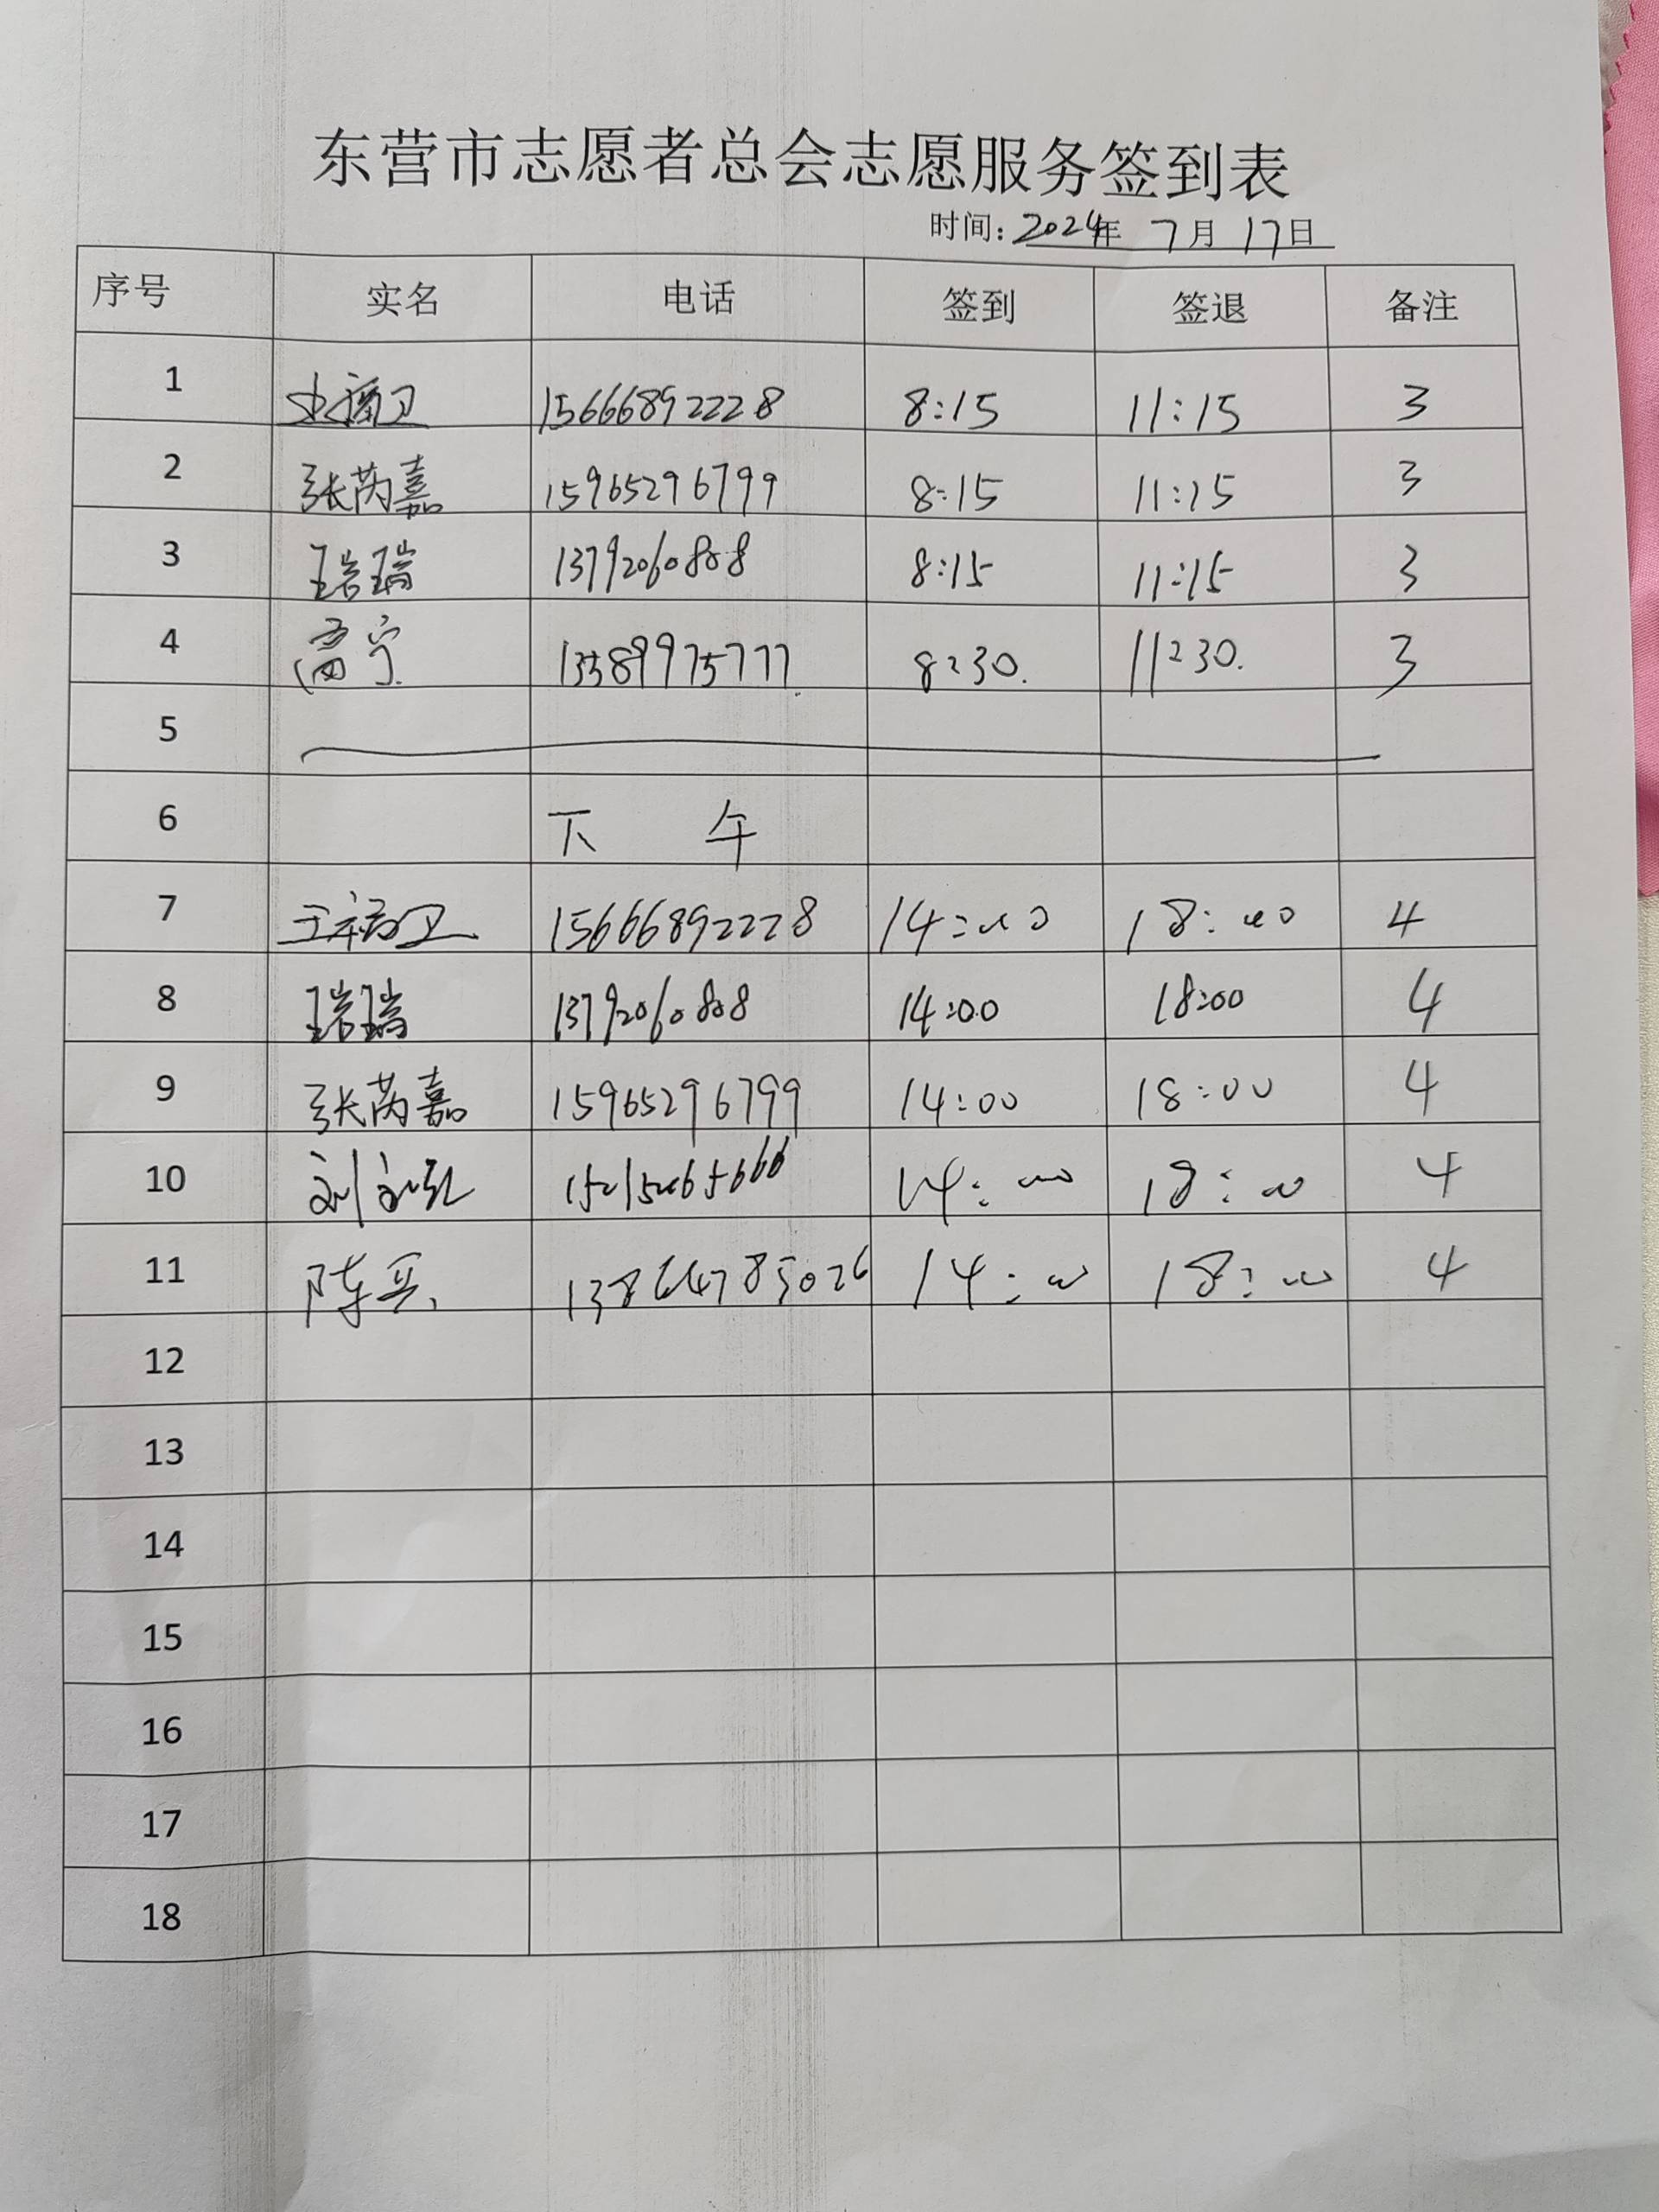 东营市志愿者总会志愿服务签到表
时间：2024年 7月 17日
序号 实名 电话 签到 签退 备注
1 15666892228 8:15 11:15 3
2 张芮嘉 15965296799 8:15 11:15 3
3 王岩瑞 13792060808 8:15 11:15 3
4 高宁 13589975777 8:30 11:30 3
5
6 下午
7 王福卫 15666892228 14:00 18:00 4
8 王岩瑞 13792060808 14:00 18:00 4
9 张芮嘉 15965296799 14:00 18:00 4
10 14:00 18:00 4
11 13864785026 14:00 18:00 4
12
13
14
15
16
17
18